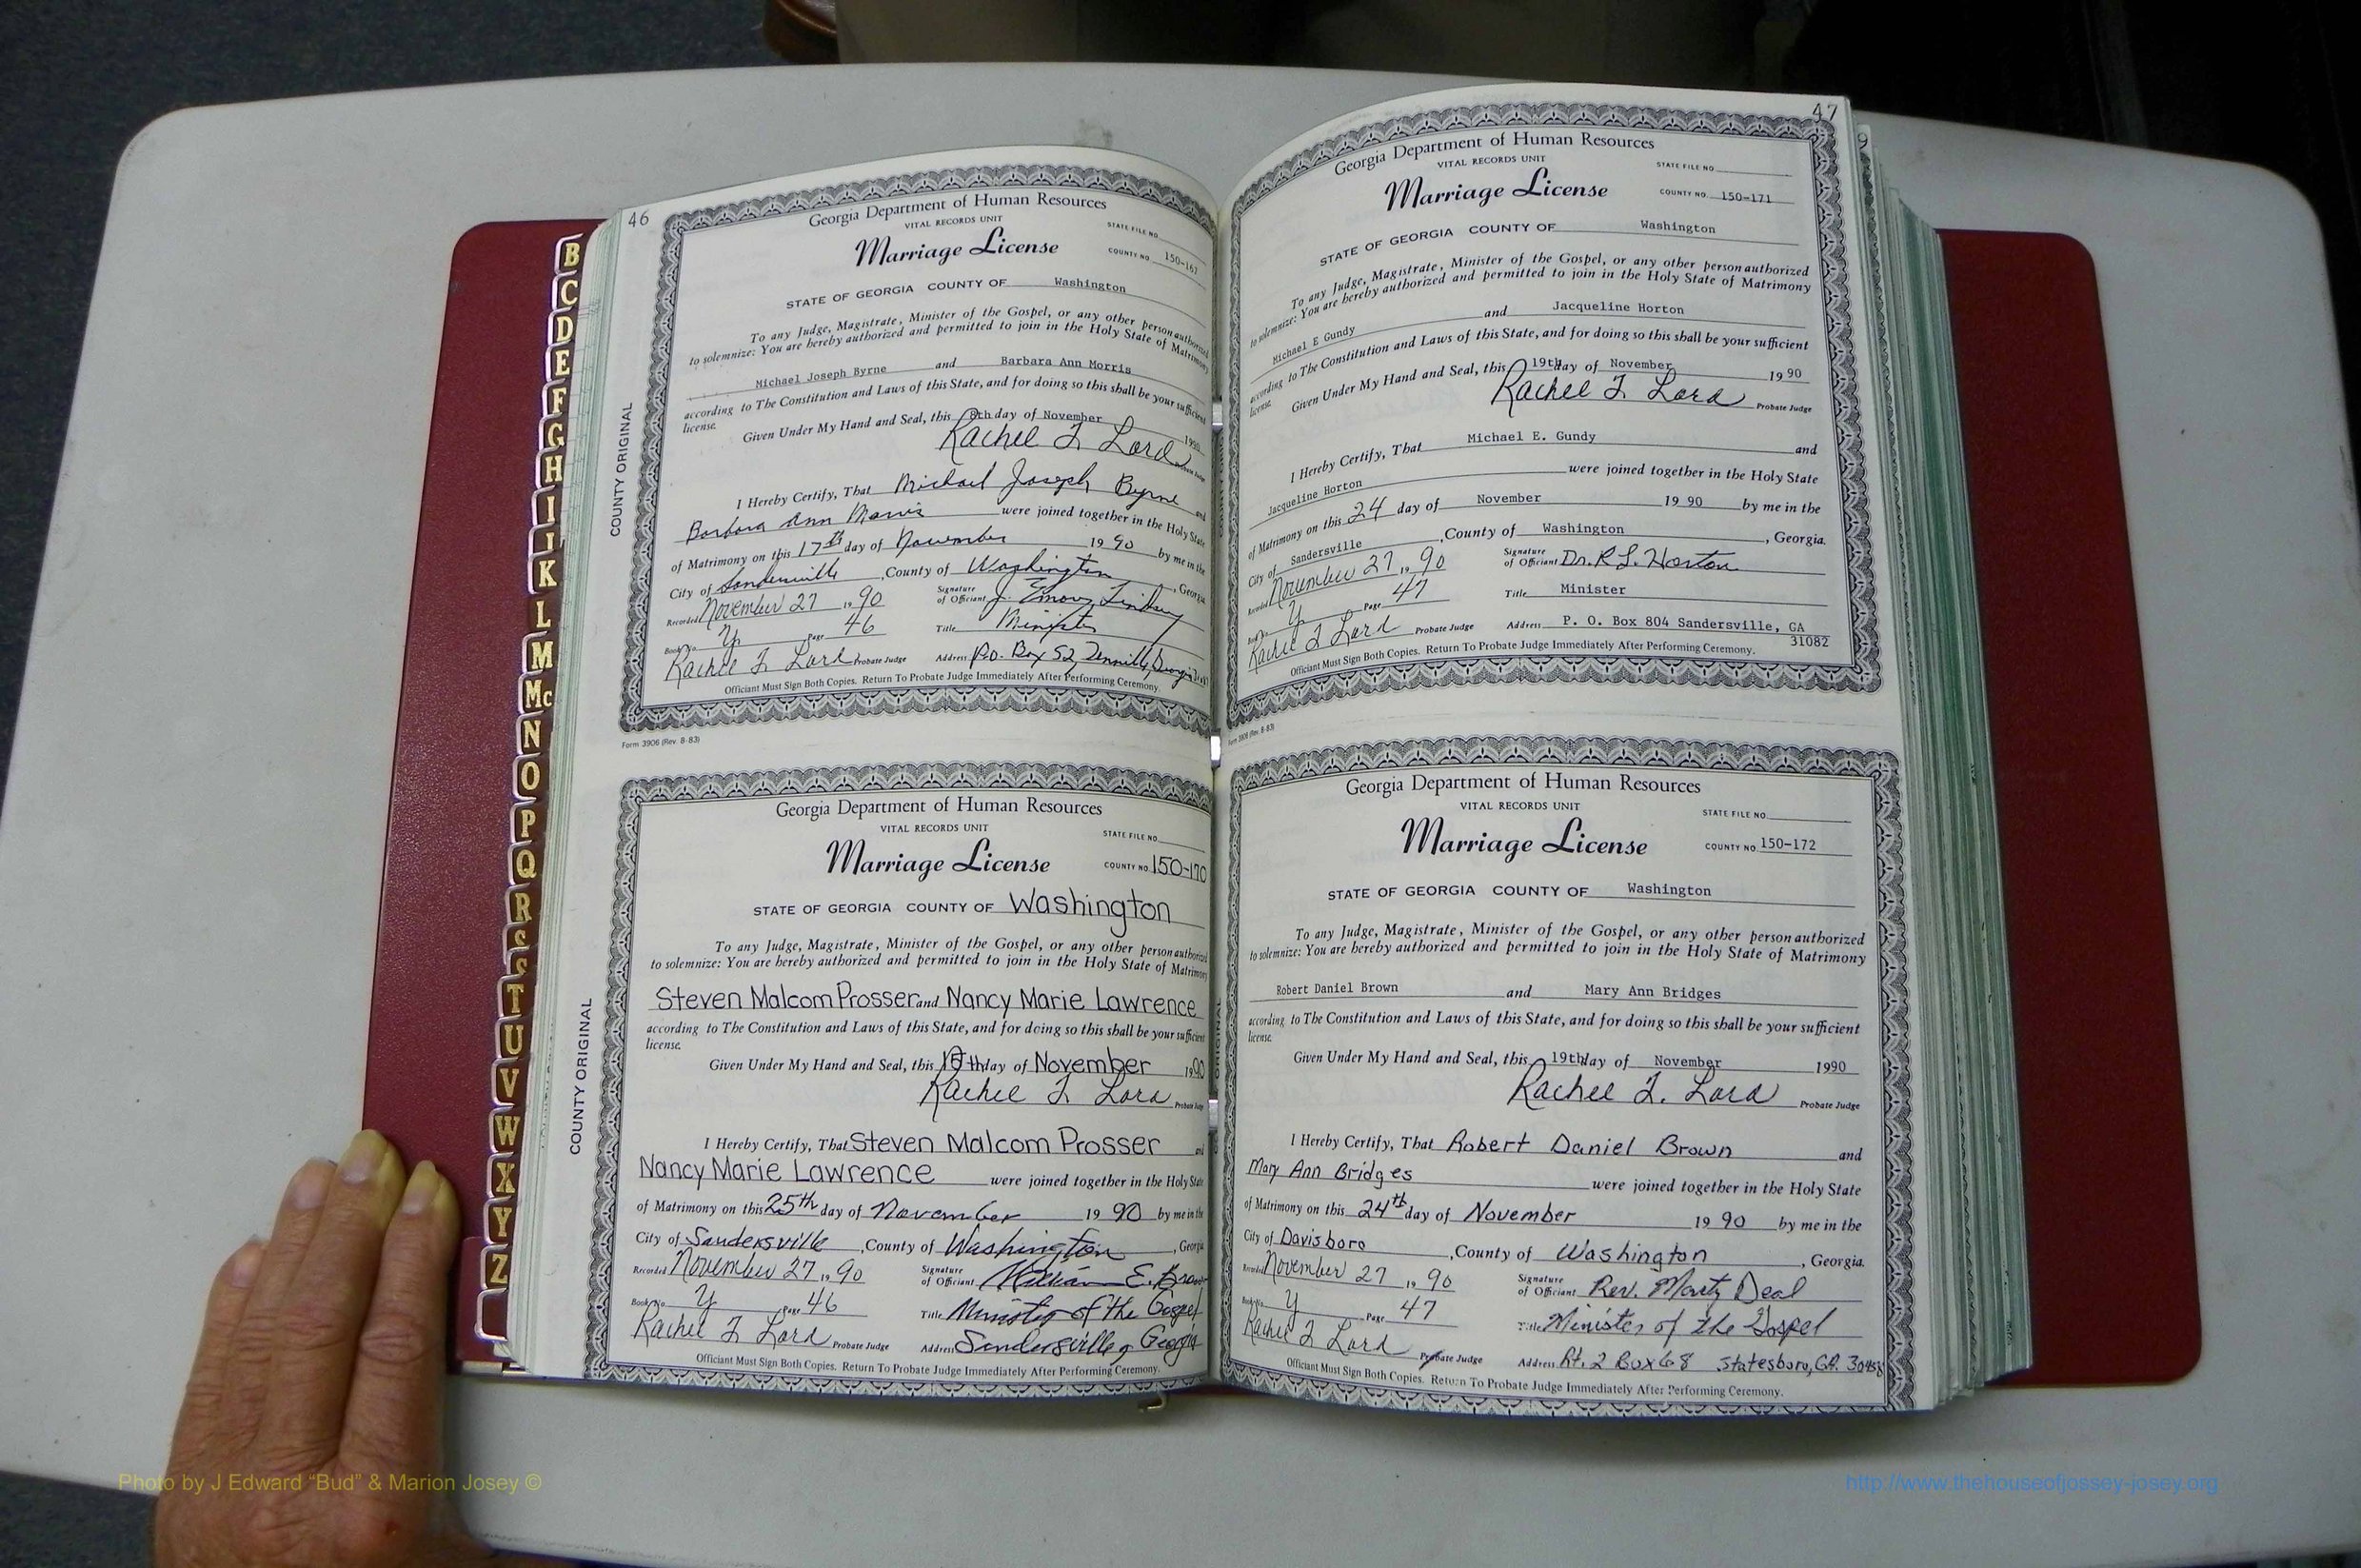 B
C
D
E
F
G
H
I
J
K
L
M
Mc
N
O
P
Q
R
S
T
U
V
W
X
Y
Z
46
Georgia Department of Human Resources
VITAL RECORDS UNIT
STATE FILE NO.
Marriage License
COUNTY NO. 150-167
STATE OF GEORGIA COUNTY OF Washington
To any Judge, Magistrate, Minister of the Gospel, or any other person authorized
to solemnize: You are hereby authorized and permitted to join in the Holy State of Matrimony
Michael Joseph Byrne and Barbara Ann Morris
according to The Constitution and Laws of this State, and for doing so this shall be your sufficient
license.
Given Under My Hand and Seal, this 8th day of November 1990
Rachel F Lord Probate Judge
I Hereby Certify, That Michael Joseph Byrne and
Barbara Ann Morris were joined together in the Holy State
of Matrimony on this 17th day of November 1990 by me in the
City of Sandersville, County of Washington, Georgia
Recorded November 27 1990 Signature of Officiant J. Emory Lindsey
Book No. Y Page 46 Title Minister
Rachel F Lord Probate Judge Address P.O. Box 52, Tennille, Georgia
Officiant Must Sign Both Copies. Return To Probate Judge Immediately After Performing Ceremony.
COUNTY ORIGINAL
Form 3906 (Rev. 8-83)
Georgia Department of Human Resources
VITAL RECORDS UNIT
STATE FILE NO.
Marriage License
COUNTY NO. 150-170
STATE OF GEORGIA COUNTY OF Washington
To any Judge, Magistrate, Minister of the Gospel, or any other person authorized
to solemnize: You are hereby authorized and permitted to join in the Holy State of Matrimony
Steven Malcom Prosser and Nancy Marie Lawrence
according to The Constitution and Laws of this State, and for doing so this shall be your sufficient
license.
Given Under My Hand and Seal, this day of November 1990
Rachel F Lord Probate Judge
I Hereby Certify, That Steven Malcom Prosser and
Nancy Marie Lawrence were joined together in the Holy State
of Matrimony on this 25th day of November 1990 by me in the
City of Sandersville, County of Washington, Georgia
Recorded November 27 1990 Signature of Officiant William E.
Book No. Y Page 46 Title Minister of the Gospel
Rachel F Lord Probate Judge Address Sandersville, Georgia
Officiant Must Sign Both Copies. Return To Probate Judge Immediately After Performing Ceremony.
COUNTY ORIGINAL
47
Georgia Department of Human Resources
VITAL RECORDS UNIT
STATE FILE NO.
Marriage License
COUNTY NO. 150-171
STATE OF GEORGIA COUNTY OF Washington
To any Judge, Magistrate, Minister of the Gospel, or any other person authorized
to solemnize: You are hereby authorized and permitted to join in the Holy State of Matrimony
Michael E Gundy and Jacqueline Horton
according to The Constitution and Laws of this State, and for doing so this shall be your sufficient
license.
Given Under My Hand and Seal, this 19th day of November 1990
Rachel F Lord Probate Judge
I Hereby Certify, That Michael E. Gundy and
Jacqueline Horton were joined together in the Holy State
of Matrimony on this 24 day of November 1990 by me in the
City of Sandersville, County of Washington, Georgia.
Recorded November 27, 1990 Signature of Officiant Dr. R L. Horton
Book No. Y Page 47 Title Minister
Rachel F Lord Probate Judge Address P. O. Box 804 Sandersville, GA
31082
Officiant Must Sign Both Copies. Return To Probate Judge Immediately After Performing Ceremony.
Form 3906 (Rev. 8-83)
Georgia Department of Human Resources
VITAL RECORDS UNIT
STATE FILE NO.
Marriage License
COUNTY NO. 150-172
STATE OF GEORGIA COUNTY OF Washington
To any Judge, Magistrate, Minister of the Gospel, or any other person authorized
to solemnize: You are hereby authorized and permitted to join in the Holy State of Matrimony
Robert Daniel Brown and Mary Ann Bridges
according to The Constitution and Laws of this State, and for doing so this shall be your sufficient
license.
Given Under My Hand and Seal, this 19th day of November 1990
Rachel F. Lord Probate Judge
I Hereby Certify, That Robert Daniel Brown and
Mary Ann Bridges were joined together in the Holy State
of Matrimony on this 24th day of November 1990 by me in the
City of Davisboro, County of Washington, Georgia.
Recorded November 27, 1990 Signature of Officiant Rev. Marty Deal
Book No. Y Page 47 Title Minister of the Gospel
Rachel F Lord Probate Judge Address Rt. 2 Box 68 Statesboro, GA. 30458
Officiant Must Sign Both Copies. Return To Probate Judge Immediately After Performing Ceremony.
Photo by J Edward “Bud” & Marion Josey ©
http://www.thehouseofjossey-josey.org